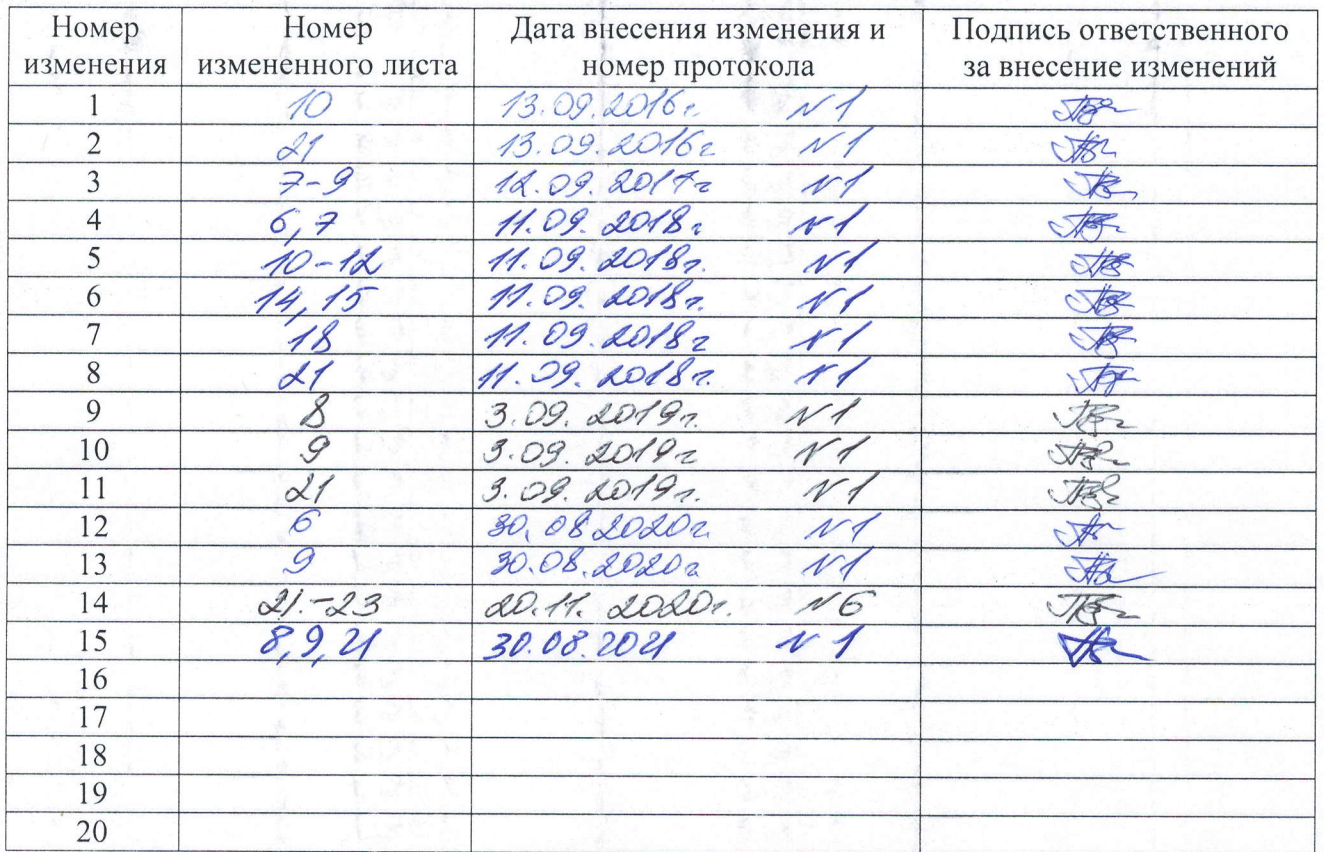 Номер изменения Номер измененного листа Дата внесения изменения и номер протокола Подпись ответственного за внесение изменений
1 10 13.09.2016г. N1
2 21 13.09.2016г N1
3 7-9 12.09.2017г N1
4 6,7 11.09.2018г N1
5 10-12 11.09.2018г. N1
6 14,15 11.09.2018г. N1
7 18 11.09.2018г N1
8 21 11.09.2018г. N1
9 8 3.09.2019г. N1
10 9 3.09.2019г N1
11 21 3.09.2019г. N1
12 6 30.08.2020г. N1
13 9 30.08.2020г N1
14 21.-23 20.11.2020г. N6
15 8,9,21 30.08.2021 N1
16
17
18
19
20